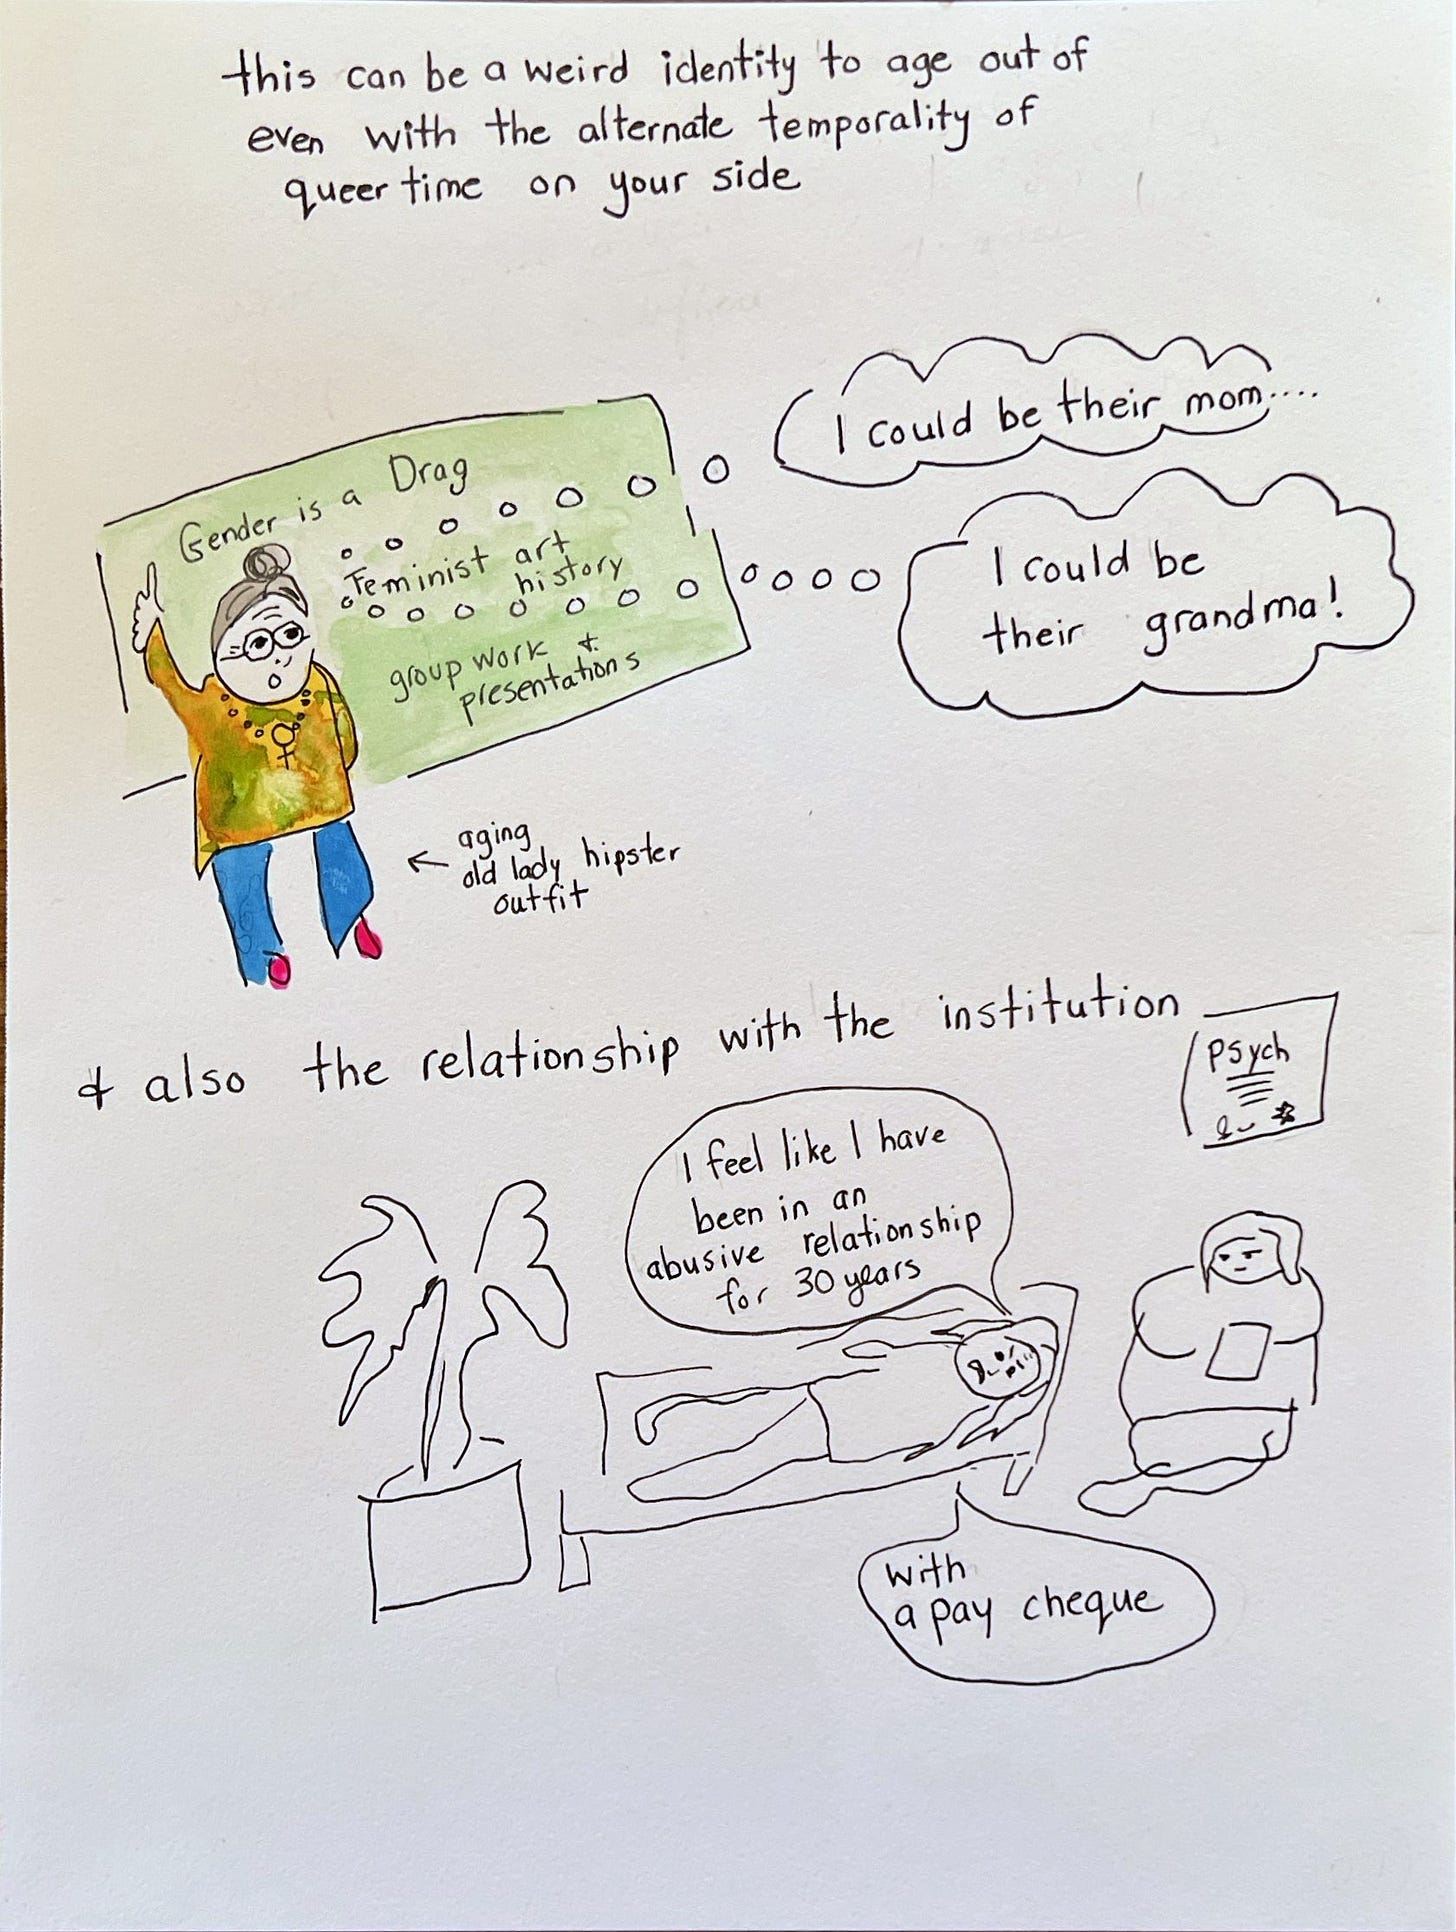 this can be a weird identity to age out of
even with the alternate temporality of
queer time on your side
I could be their mom....
I could be
their grandma!
Gender is a Drag
Feminist art
history
group work &
presentations
aging
old lady hipster
outfit
& also the relationship with the institution
Psych
I feel like I have
been in an
abusive relationship
for 30 years
with
a pay cheque